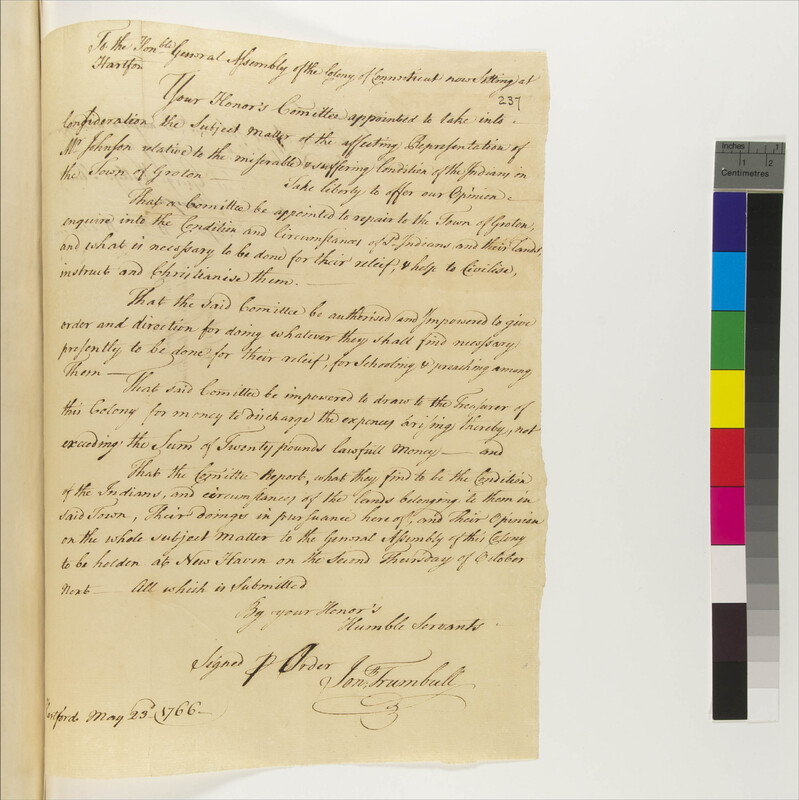 To the Honble General Assembly of the Colony of Connecticut now Sitting at
Hartford
237
Your Honor's Comittee appointed to take into
Consideration the Subject Matter of the affecting Representation of
Mr Johnson relative to the miserable & suffering Condition of the Indians in
the Town of Groton — Take liberty to offer our Opinion
That a Comittee be appointed to repair to the Town of Groton,
enquire into the Condition and Circumstances of sd Indians and their Lands,
and what is necessary to be done for their relief, & help to Civilise,
instruct and Christianise them. —
That the said Comittee be authorised and Impowered to give
order and direction for doing whatever they shall find necessary
presently to be done for their relief, for Schooling & preaching among
Them —
That said Comittee be impowered to draw to the Treasurer of
this Colony for money to discharge the expences arising thereby, not
exceeding the Sum of Twenty pounds lawfull money — and
That the Comittee Report, what they find to be the Condition
of the Indians, and circumstances of the lands belonging to them in
said Town, Their doings in pursuance hereof, and Their Opinion
on the whole subject matter to the General Assembly of this Colony
to be holden at New Haven on the Second Thursday of October
Next — All which is Submitted
By your Honor's
Humble Servants
Signed P Order
Jonth Trumbull
Hartford May 23d 1766 —
inches 1
1 2
Centimetres